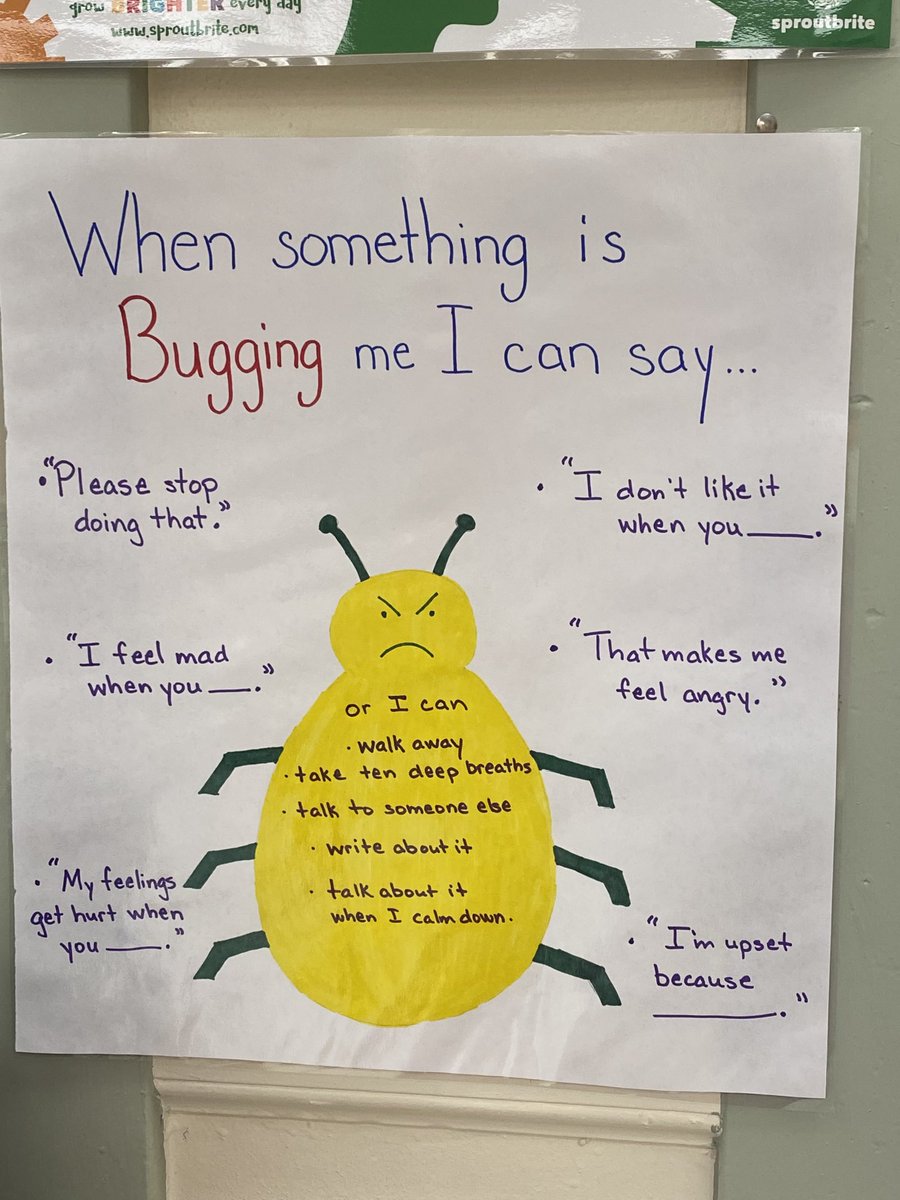 grow BRIGHTER every day
www.sproutbrite.com
sproutbrite
When something is
Bugging me I can say...
• "Please stop
doing that."
• "I don't like it
when you ____."
• "I feel mad
when you ____."
• "That makes me
feel angry."
or I can
• walk away
• take ten deep breaths
• talk to someone else
• write about it
• talk about it
when I calm down.
• "My feelings
get hurt when
you ____."
• "I'm upset
because
________."